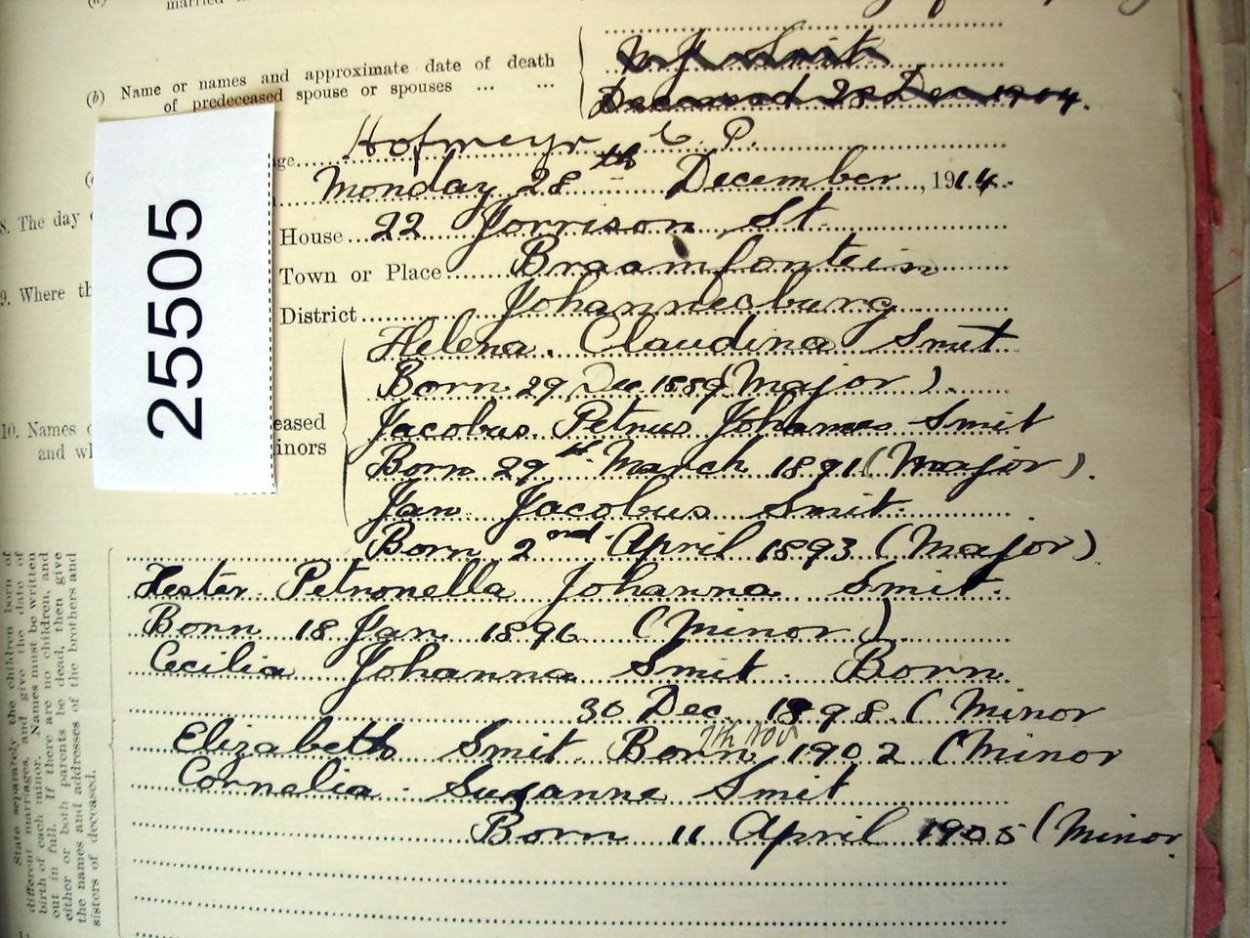 married
(b) Name or names and approximate date of death
of predeceased spouse or spouses ... ...
Smit
Deceased 28 Dec 1904.
Hofmeyr C. P.
Monday 28th December, 1914.
8. The day
House... 22 Jorrison St.
9. Where th
Town or Place Braamfontein
District Johannesburg
Helena. Claudina Smit
Born 29 Dec 1889 (Major).
10. Names
eased
Jacobus Petrus Johannes Smit
and wh
inors
Born 29th March 1891 (Major).
Jan Jacobus Smit.
Born 2nd April 1893 (Major)
Hester Petronella Johanna Smit.
Born 18 Jan 1896 (Minor)
Cecilia Johanna Smit. Born
30 Dec. 1898. (Minor
7th Nov
Elizabeth Smit Born 1902 (Minor
Cornelia Susanne Smit
Born 11 April 1905 (Minor
25505
State separately the children born of
different marriages, and give the date of
birth of each minor. Names must be written
out in full. If there are no children, and
either or both parents be dead, then give
the names and addresses of the brothers and
sisters of deceased.